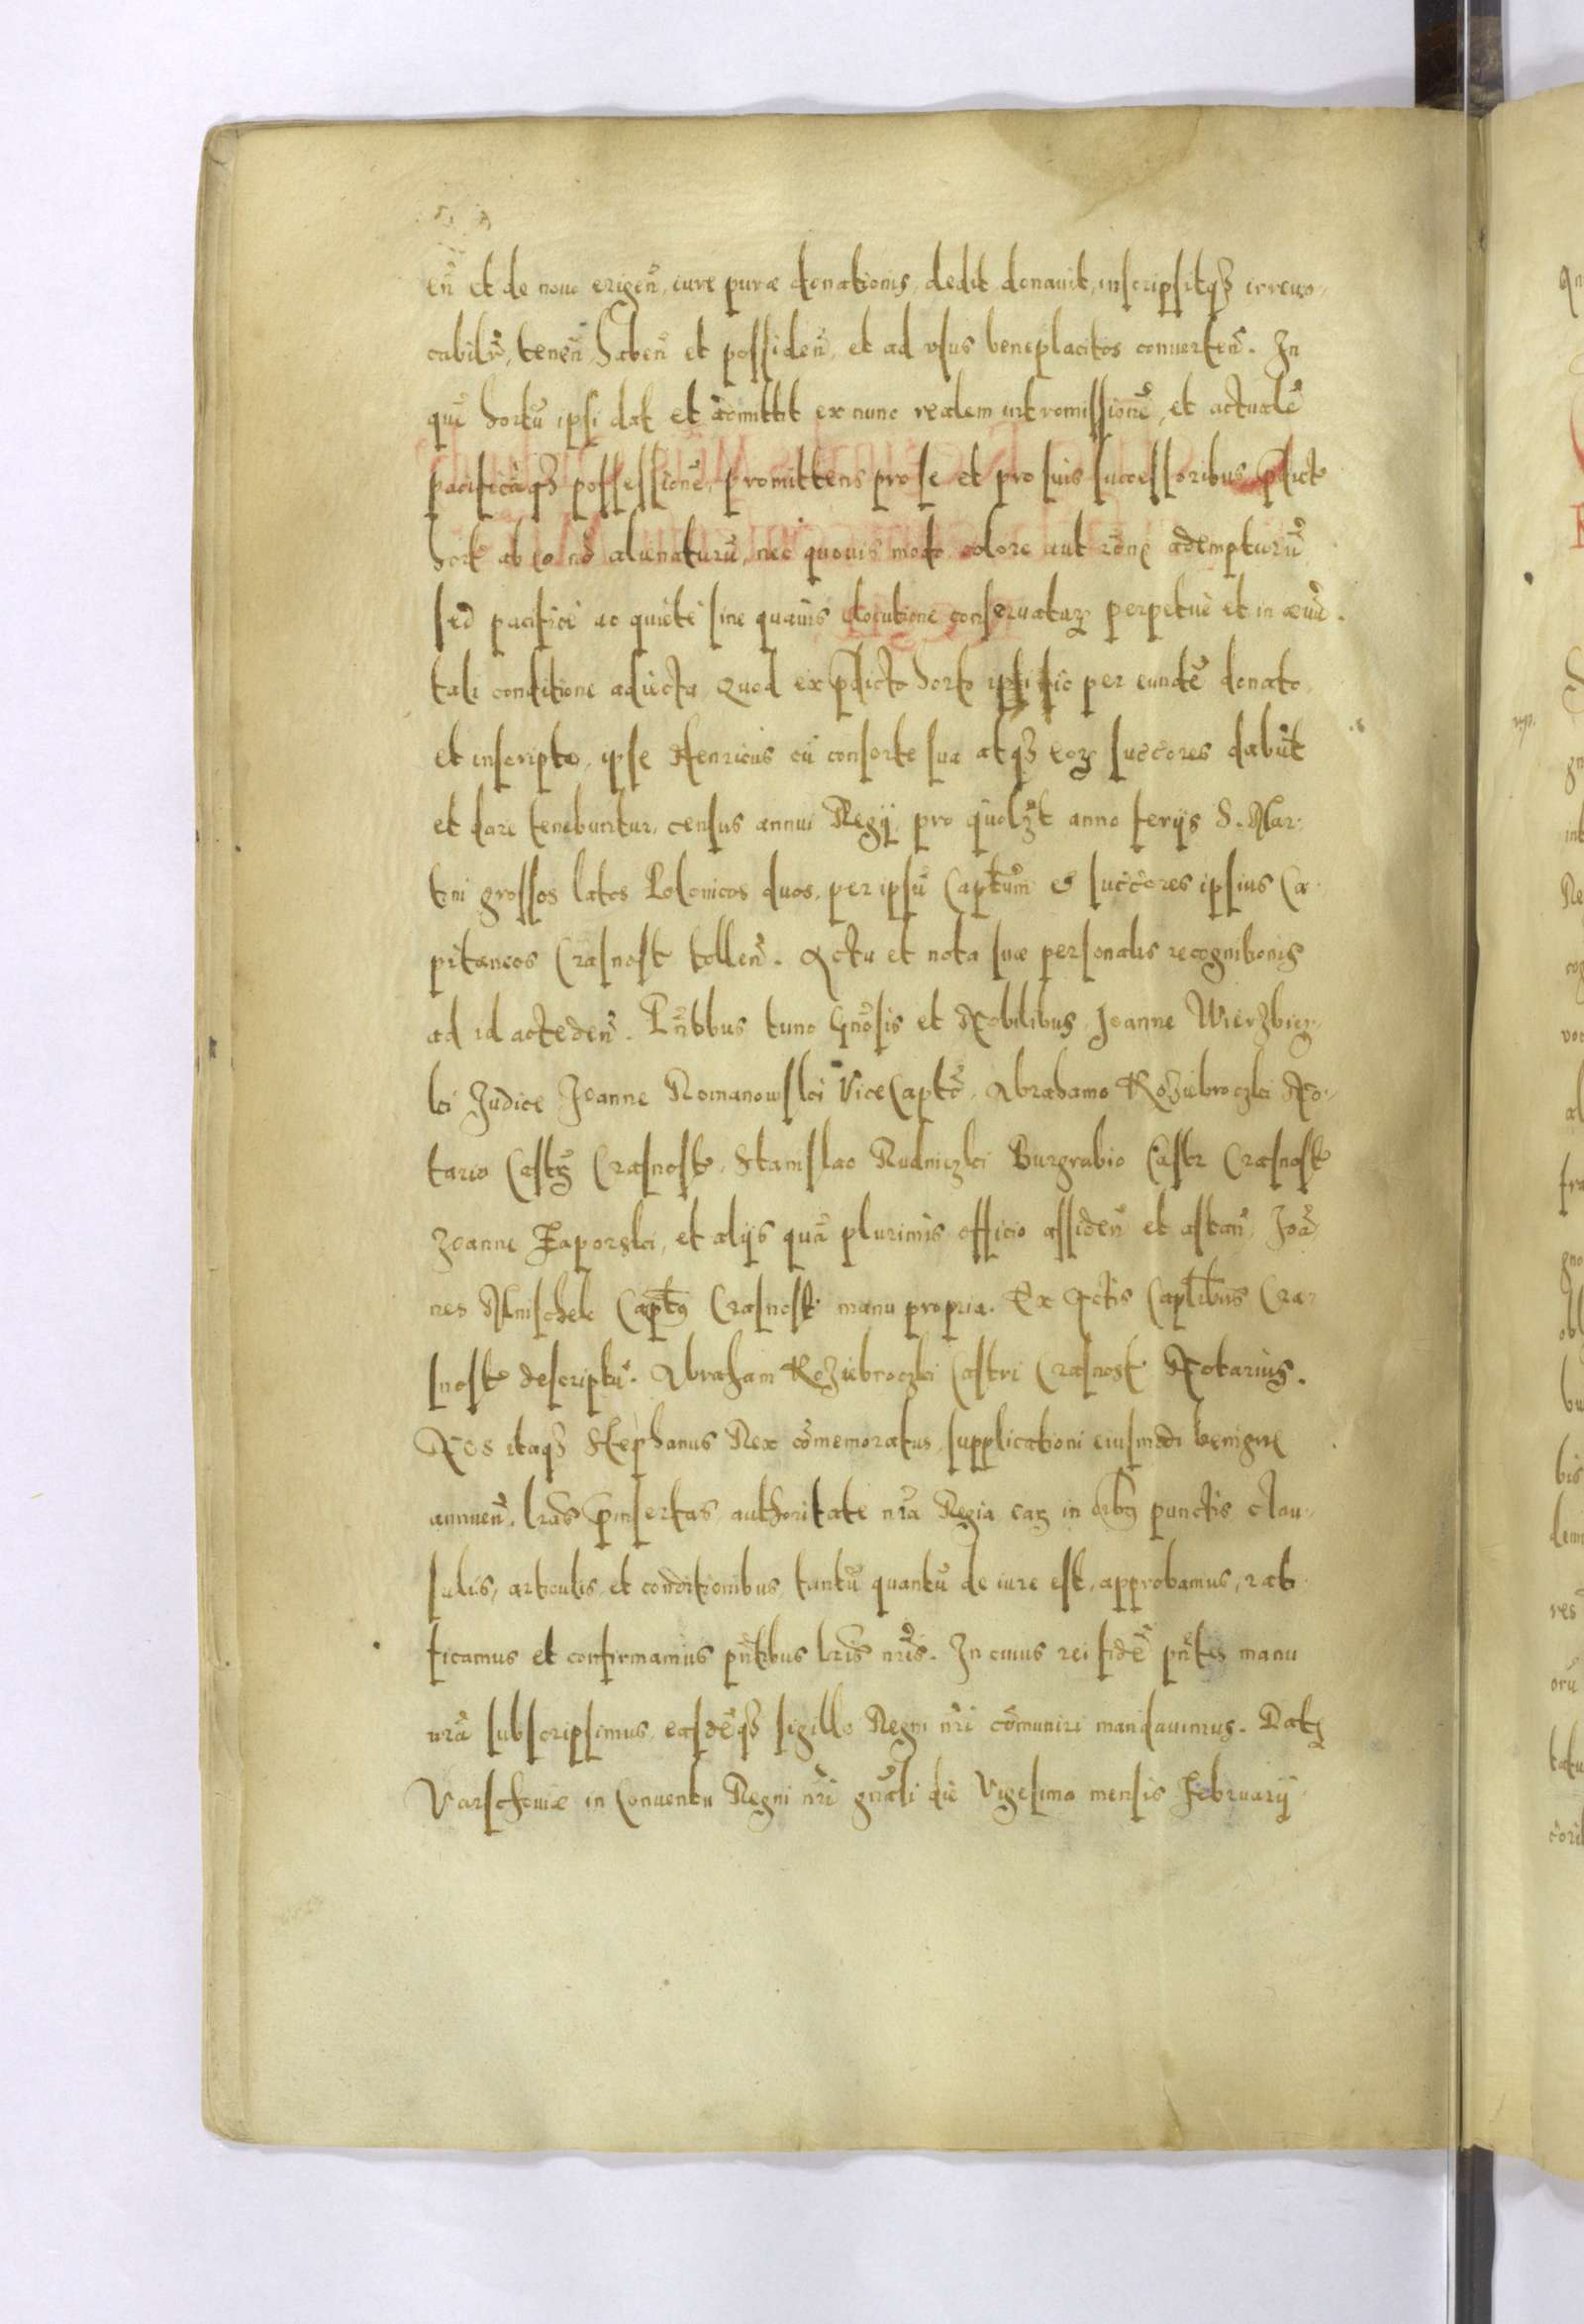 eñ et de nouo erigeñ, iure puræ donationis, dedit donauit, inscripsitqꝫ irreuo-
cabilr̃, teneñ, habeñ et possideñ, et ad vsus beneplacitos conuerteñ. In
quẽ hortũ ipsi dat et admittit ex nunc realem intromissionẽ, et actualẽ
pacificãqꝫ possessionẽ, promittens pro se et pro suis successoribus p̃dict
hort ab eo nõ alienaturũ, nec quouis modo colore aut rõne adempturũ
sed pacificè ac quietè sine quauis conseruatuꝝ perpetuè et in æuũ.
tali conditione adiecta Quod ex p̃dicto horto ipsi sic per eundẽ donato
et inscripto, ipse Henricus cũ consorte sua atqꝫ eoꝝ succores dabũt
et dare tenebuntur, census annui Regij, pro quolꝫt anno ferijs S. Mar-
tini grossos latos Polonicos duos, per ipsũ Captum & succores ipsius Ca-
pitaneos Crasnost tolleñ. Actu et nota suæ personalis recognitionis
ad id accedeñ. Pñtibus tunc Gñosis et Nobilibus, Joanne Wierzbicz-
ki Judice Joanne Romanowski ViceCaptõ, Abrahamo Kozùebroczki No-
tario Castꝝ Crasnost, Stanislao Rudniczki Burgrabio Castr Crasnost
Joanne Zaporski, et alijs quã plurimis officio assideñ et astañ, Joã-
nes Mnischek Captꝰ Crasnost manu propria. Ex Actis Captlibus Cra-
snost descriptũ. Abraham Kozùebroczki Castri Crasnost Notarius.
Nos itaqꝫ Stephanus Rex cõmemoratus, supplicationi eiusmodi benigne
annueñ, lr̃as p̃insertas, authoritate nr̃a Regia eaꝝ in oĩbꝰ punctis clau-
sulis, articulis, et conditionibus, tantũ quantũ de iure est, approbamus, rati-
ficamus et confirmamus pñtibus lr̃is nr̃is. In cuius rei fidẽ pñtes manu
nr̃a subscripsimus, easdẽqꝫ sigillo Regni nr̃i cõmuniri mandauimus. Datꝫ
Varschouiæ in Conuentu Regni nr̃i gñali die Vigesima mensis Februarij